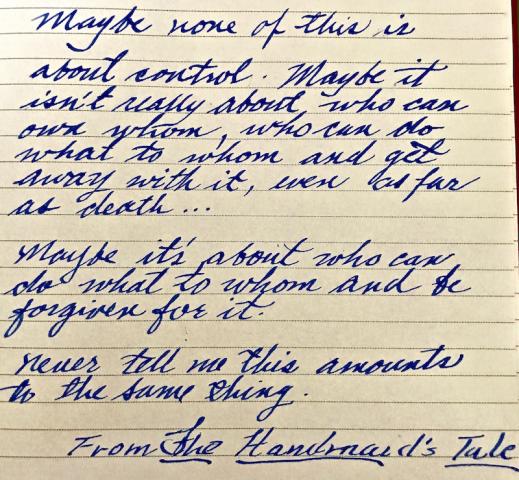 Maybe none of this is
about control. Maybe it
isn't really about who can
own whom, who can do
what to whom and get
away with it, even as far
as death...
Maybe it's about who can
do what to whom and be
forgiven for it.
Never tell me this amounts
to the same thing.
From The Handmaid's Tale